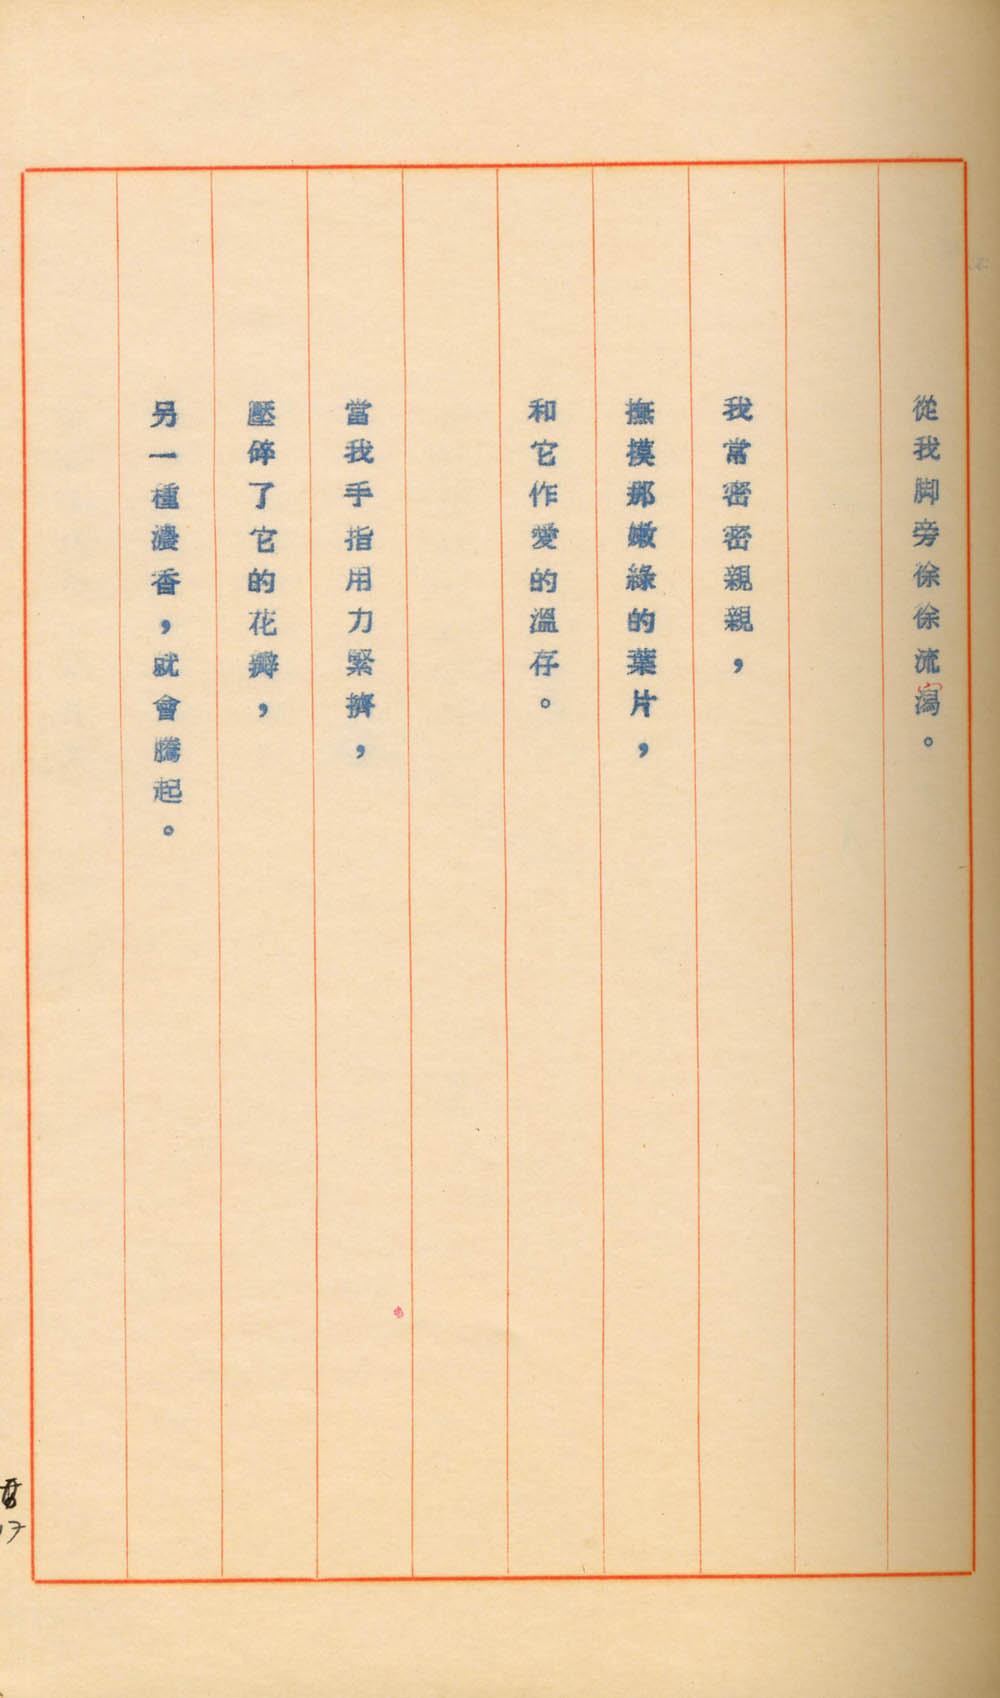 從我脚旁徐徐流瀉。
我常密密親親，
撫摸那嫩綠的葉片，
和它作愛的溫存。
當我手指用力緊擠，
壓碎了它的花瓣，
另一種濃香，就會騰起。
17